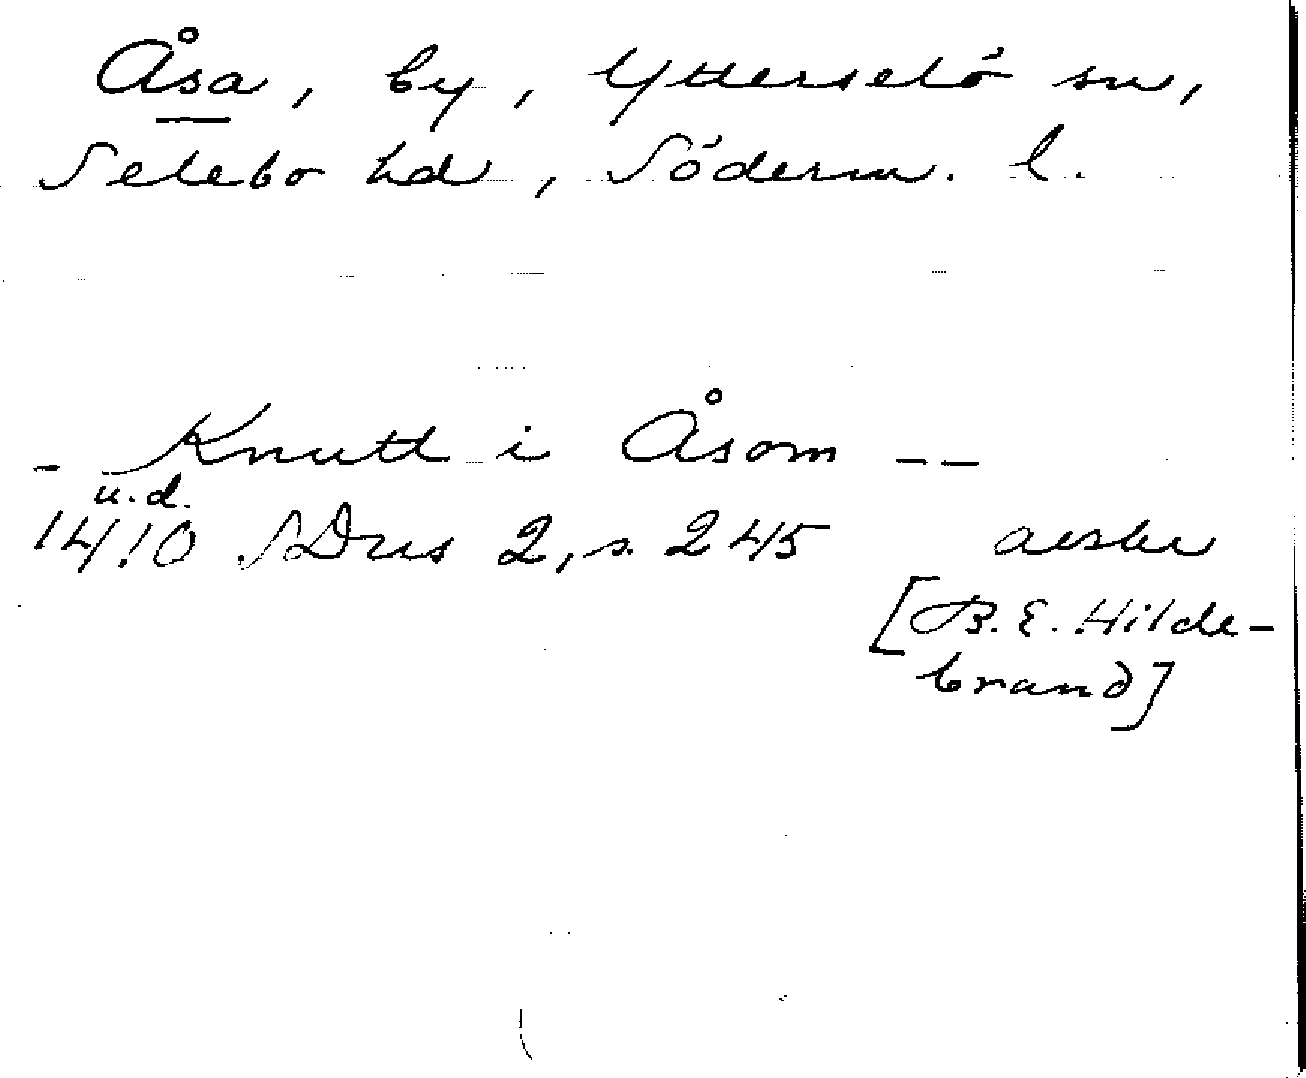 Åsa, by, Ytterselö sn,
Selebo hd, Söderm. l.
- Knutt i Åsom --
u.d.
1410 SDns 2, s. 245 avskr
[B.E. Hilde-
brand]